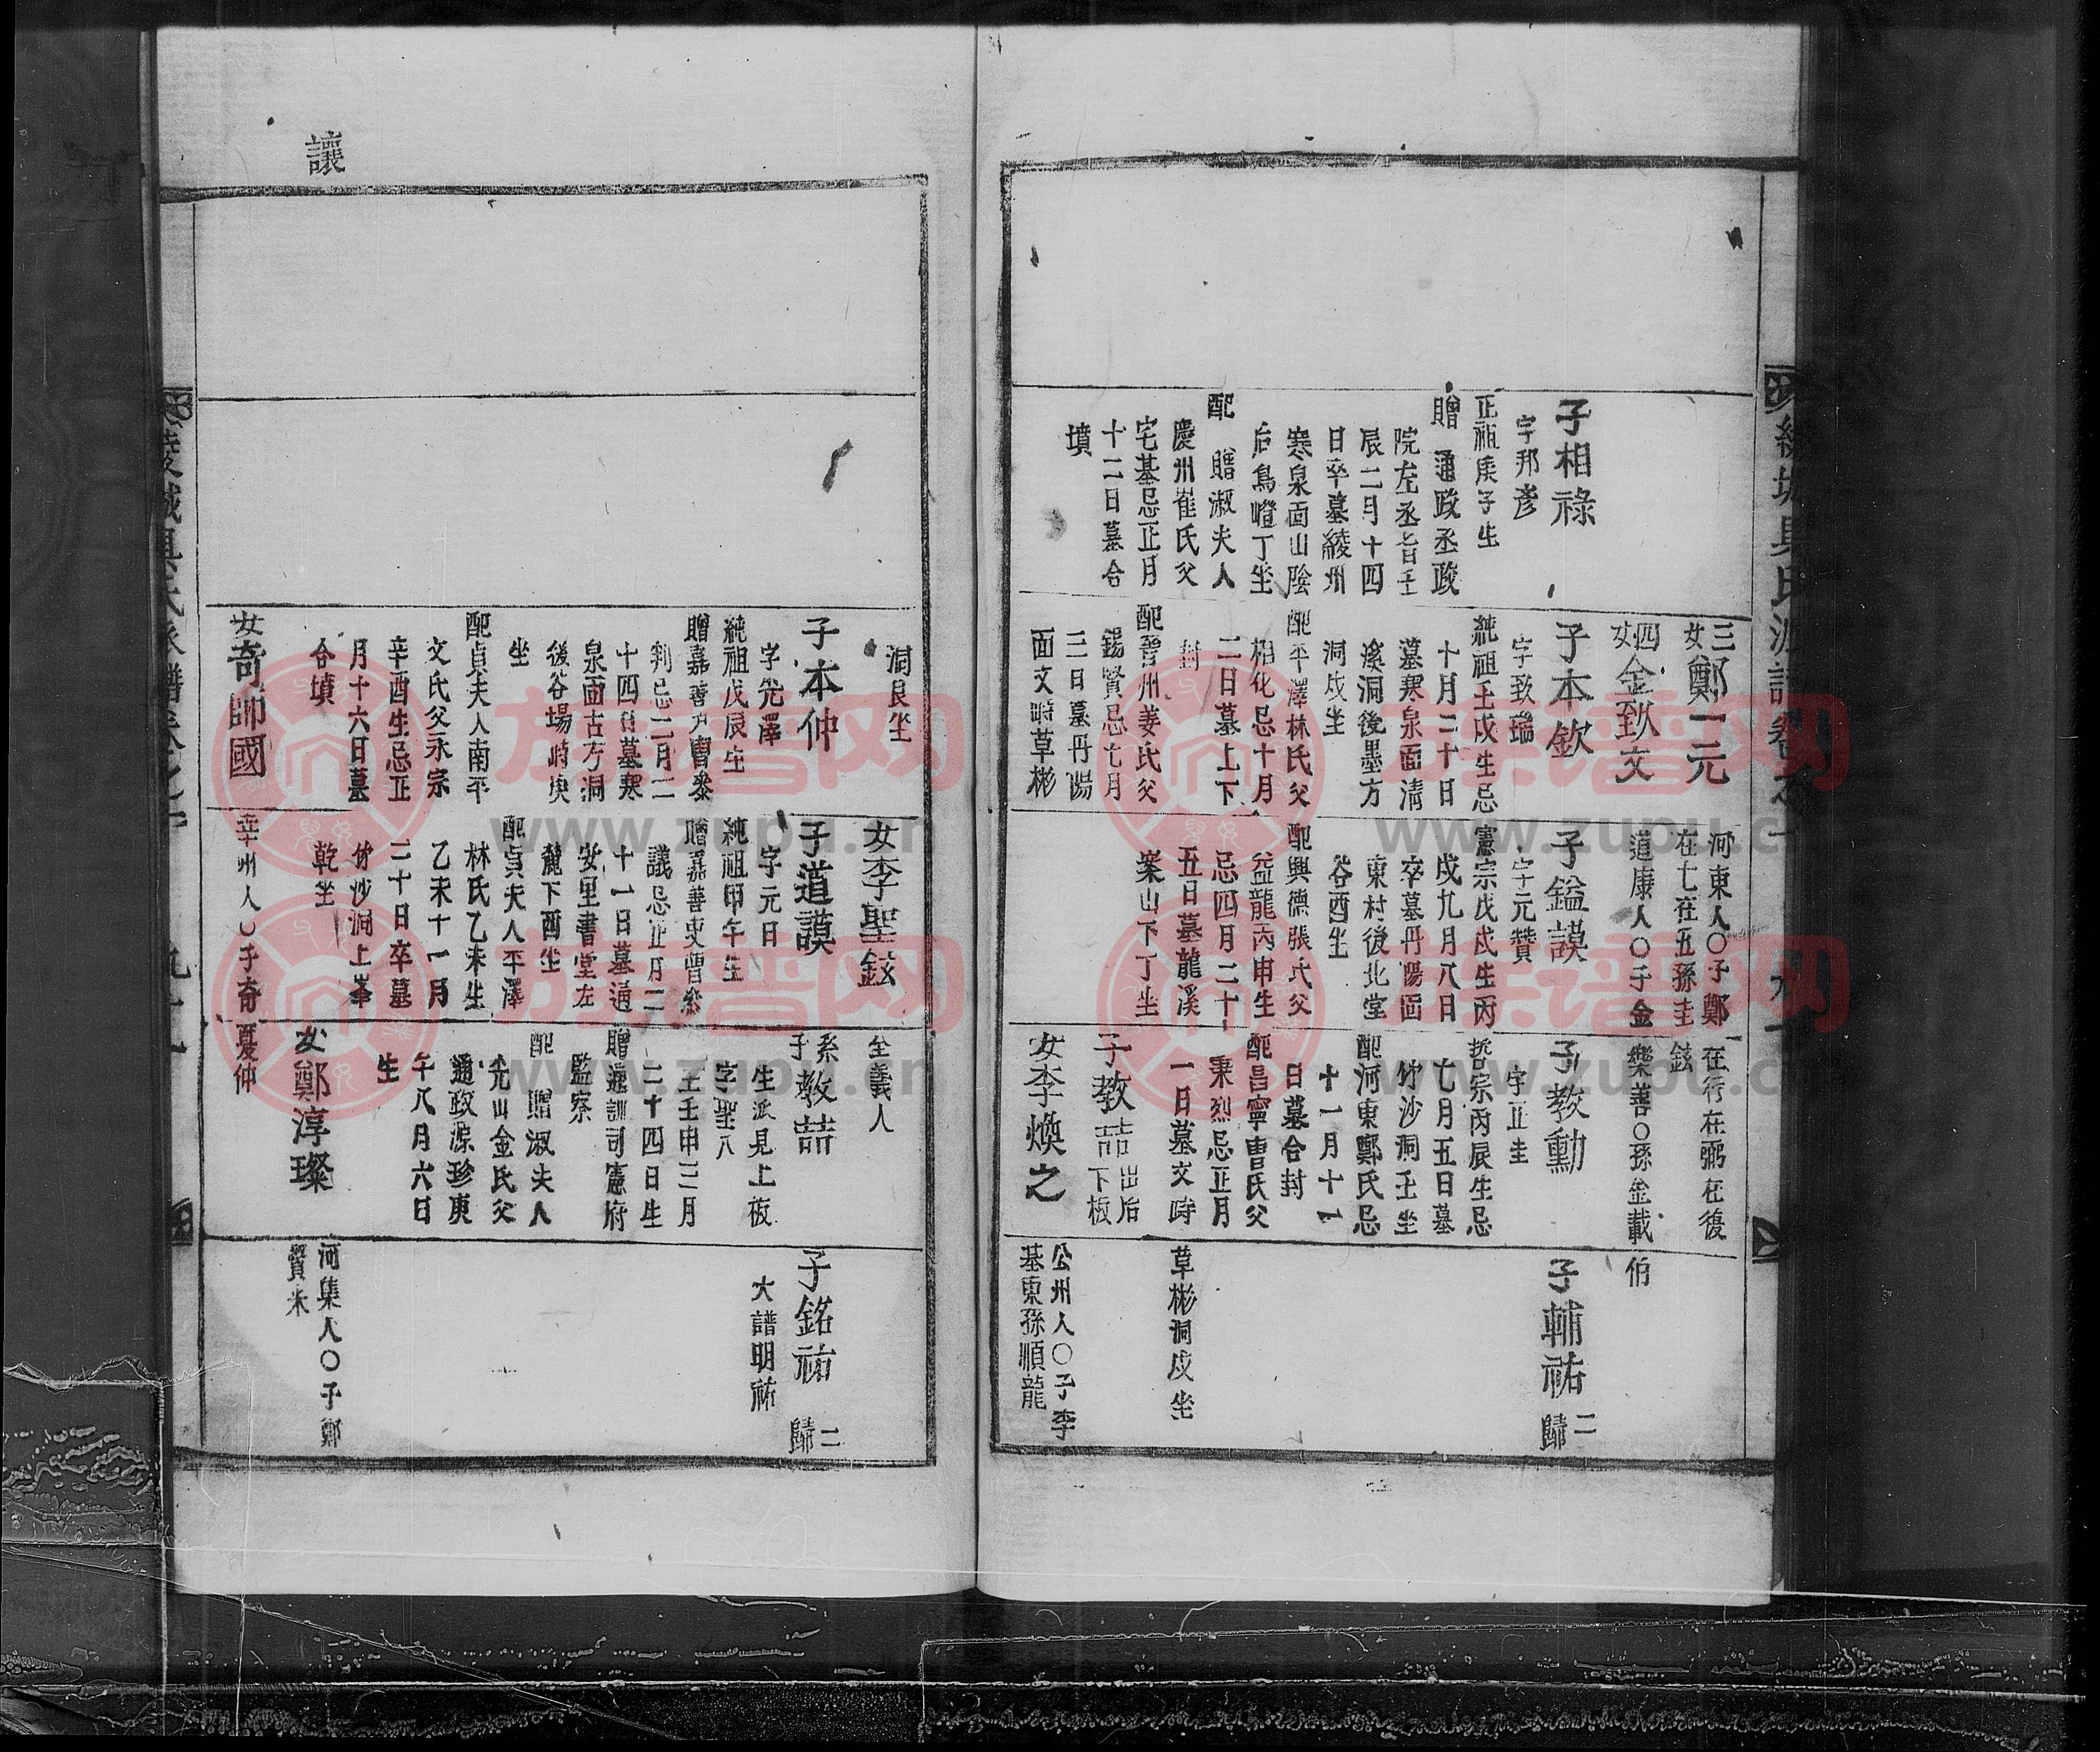 綾城具氏派譜卷之
子相祿
字邦彥
正祖庚子生
贈 通政丞政
院左丞旨壬
辰二月十四
日卒墓綾州
寒泉面山陰
后鳥嶝丁坐
配 贈淑夫人
慶州崔氏父
宅基忌正月
十二日墓合
墳
三女鄭一元
四女金致文
子本欽
字致瑞
純祖壬戌生忌
十月二十日
墓寒泉面清
溪洞後墨方
洞戌坐
配平澤林氏父
相化忌十月
二日墓上下
封
配晉州姜氏父
錫賢忌七月
三日墓丹陽
面文時草彬
河東人〇子鄭
在七在五孫圭
道康人〇子金
子鎰謨
字元贊
憲宗戊戌生丙
戌九月八日
卒墓丹陽面
東村後北堂
谷酉坐
配興德張氏父
益龍丙申生
忌四月二十
五日墓龍溪
案山下丁坐
在行在弼在復
鉉
樂善〇孫金載
子敎勳
字正圭
哲宗丙辰生忌
七月五日墓
竹沙洞壬坐
配河東鄭氏忌
十一月十一
日墓合封
配昌寧曺氏父
秉烈忌正月
一日墓文時
子敎喆出后下板
女李煥之
伯
子輔祐 二歸
草彬洞戌坐
公州人〇子李
基東孫順龍
讓
洞艮坐
子本仲
字先澤
純祖戊辰生
贈嘉善戶曹參
判忌二月二
十四日墓寒
泉面古方洞
後谷場峙庚
坐
配貞夫人南平
文氏父永宗
辛酉生忌正
月十六日墓
合墳
女奇師國
女李聖鉉
子道謨
字元日
純祖甲午生
贈嘉善吏曹參
議忌正月二
十一日墓道
安里書堂左
麓下酉坐
配貞夫人平澤
林氏乙未生
乙未十一月
二十日卒墓
竹沙洞上峯
乾坐
幸州人〇子奇
全義人
系子敎喆
生派見上板
字聖八
壬申三月
二十四日生
贈通訓司憲府
監察
配 贈淑夫人
光山金氏父
通政源珍庚
午八月六日
生
女鄭淳璨
夏仲
子銘祐 二歸
大譜明祐
河集人〇子鄭
賢采
綾城具氏派譜卷之